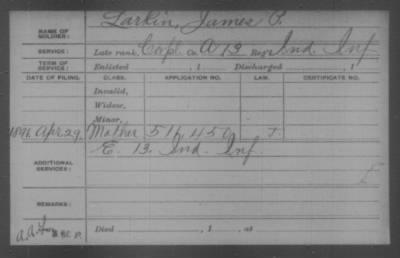 NAME OF SOLDIER: Larkin, James P.
SERVICE: Late rank, Corpl Co. A 13 Reg't Ind. Inf.
TERM OF SERVICE: Enlisted , 1 Discharged , 1
DATE OF FILING. CLASS. APPLICATION NO. LAW. CERTIFICATE NO.
Invalid,
Widow,
Minor,
1890 Apr 29. Mother 516,450 J.
ADDITIONAL SERVICES: E. 13. Ind. Inf.
REMARKS:
Died , 1 , at